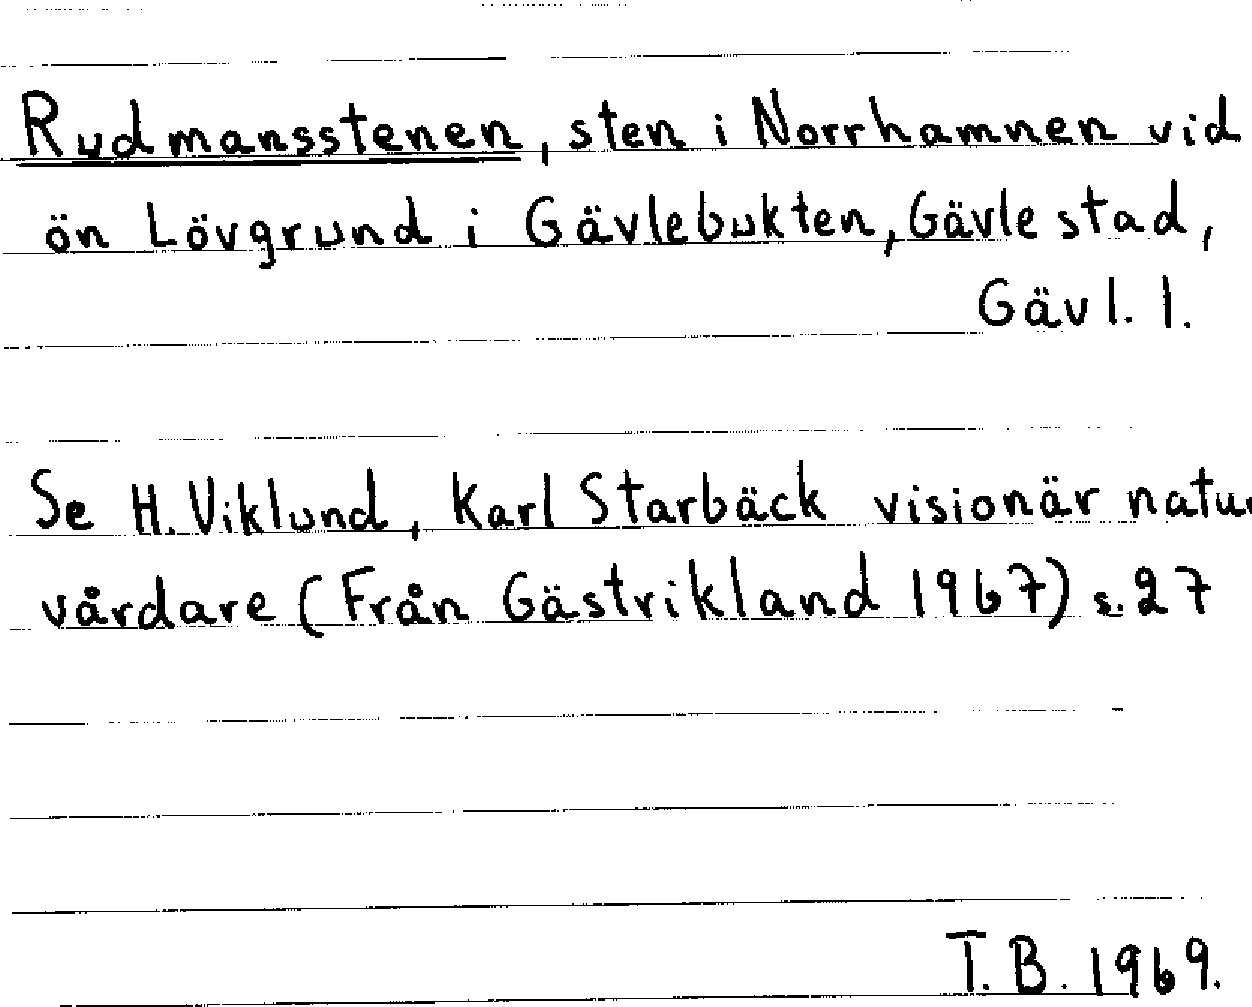 Rudmansstenen, sten i Norrhamnen vid
ön Lövgrund i Gävlebukten, Gävle stad,
Gävl. l.
Se H. Viklund, Karl Starbäck visionär natur
vårdare (Från Gästrikland 1967) s. 27
T. B. 1969.